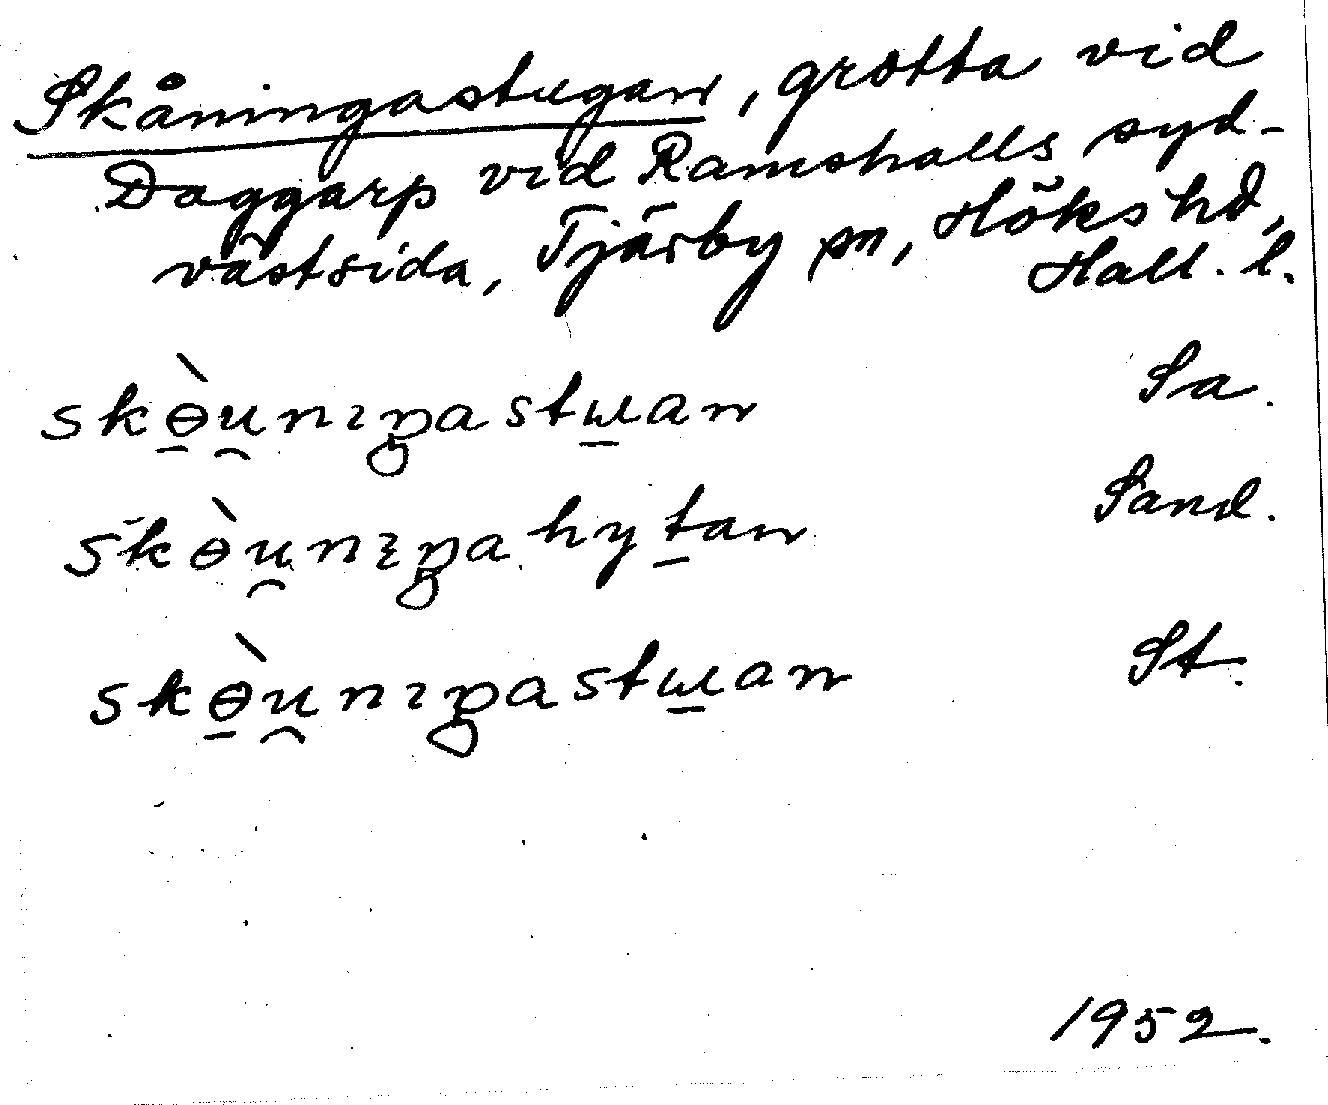 Skåningastugan, grotta vid
Daggarp vid Ramshalls syd-
västsida, Tjärby sn, Höks hd,
Hall. l.
skɵ̀u̯nıŋastɯan Sa.
skɵ̀u̯nıŋahytan Sand.
skɵ̀u̯nıŋastɯan St.
1952.